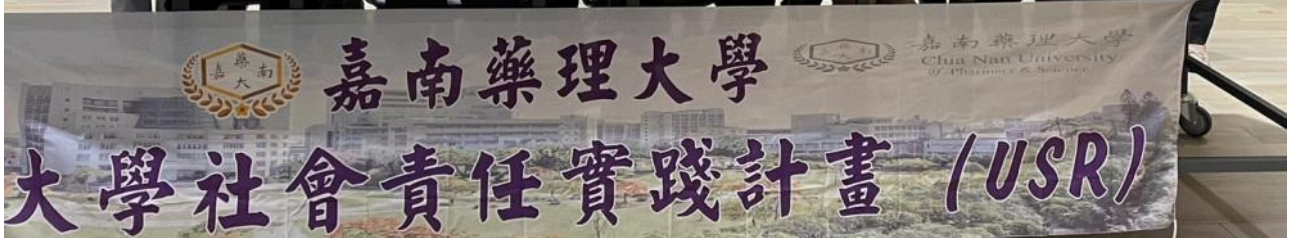 嘉藥南大
嘉南藥理大學
嘉藥南大
嘉南藥理大學
Chia Nan University
of Pharmacy & Science
大學社會責任實踐計畫 (USR)